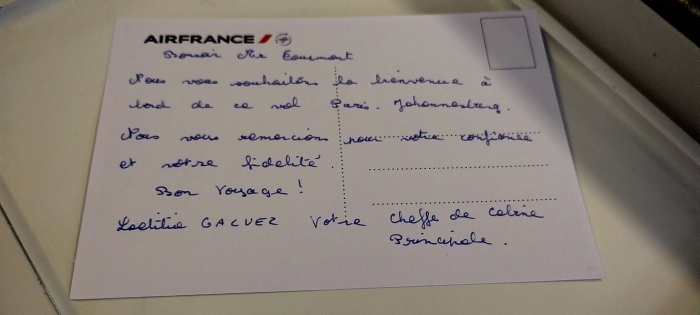 AIRFRANCE
Bonsoir Mr
Nous vous souhaitons la bienvenue à
bord de ce vol Paris - Johannesburg.
Nous vous remercions pour votre confiance
et votre fidélité.
Bon voyage !
Laetitia GALVEZ Votre Cheffe de Cabine
Principale.